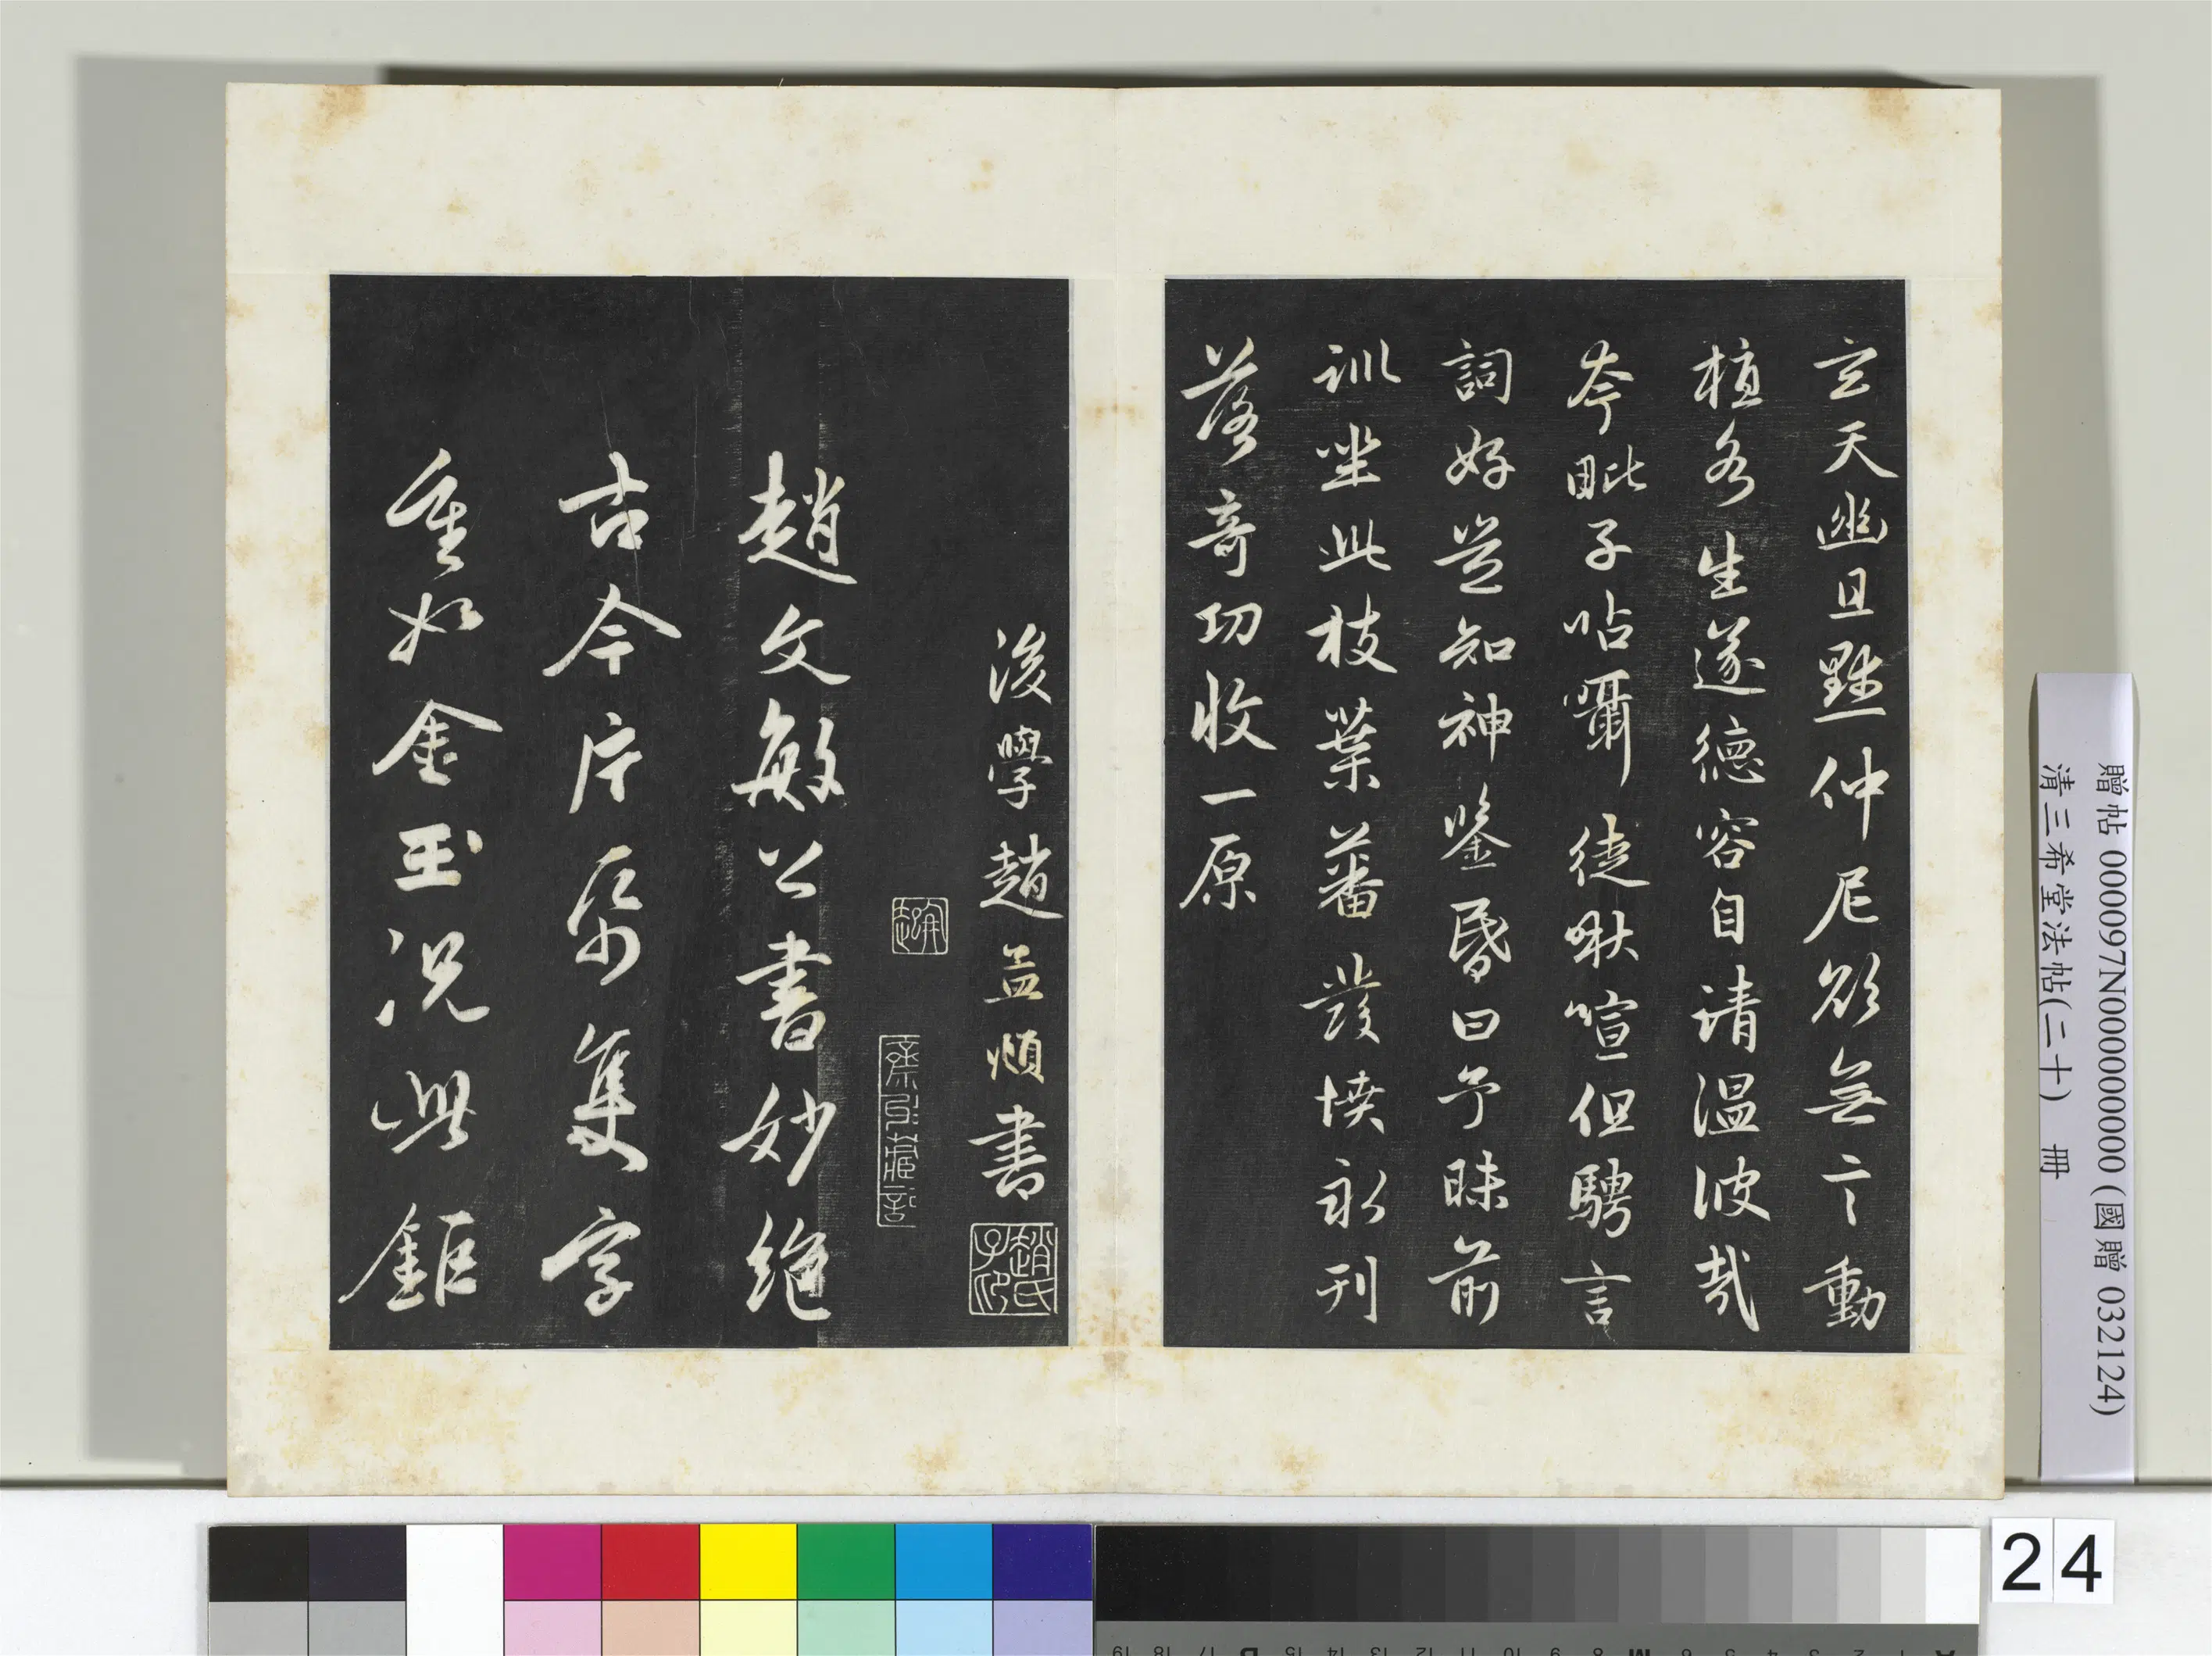 玄天幽且默仲尼欲無言動
植各生遂德容自清溫彼哉
夸毗子呫囁徒啾喧但騁言
詞好豈知神鑒昏曰予昧前
訓坐此枝葉蕃發憤永刊
落奇功收一原
後學趙孟頫書
趙氏子昂
趙文敏公書妙絕
古今片帋隻字
重如金玉況此鉅
贈帖 000097N000000000 (國贈 032124)
清三希堂法帖(二十) 冊
24